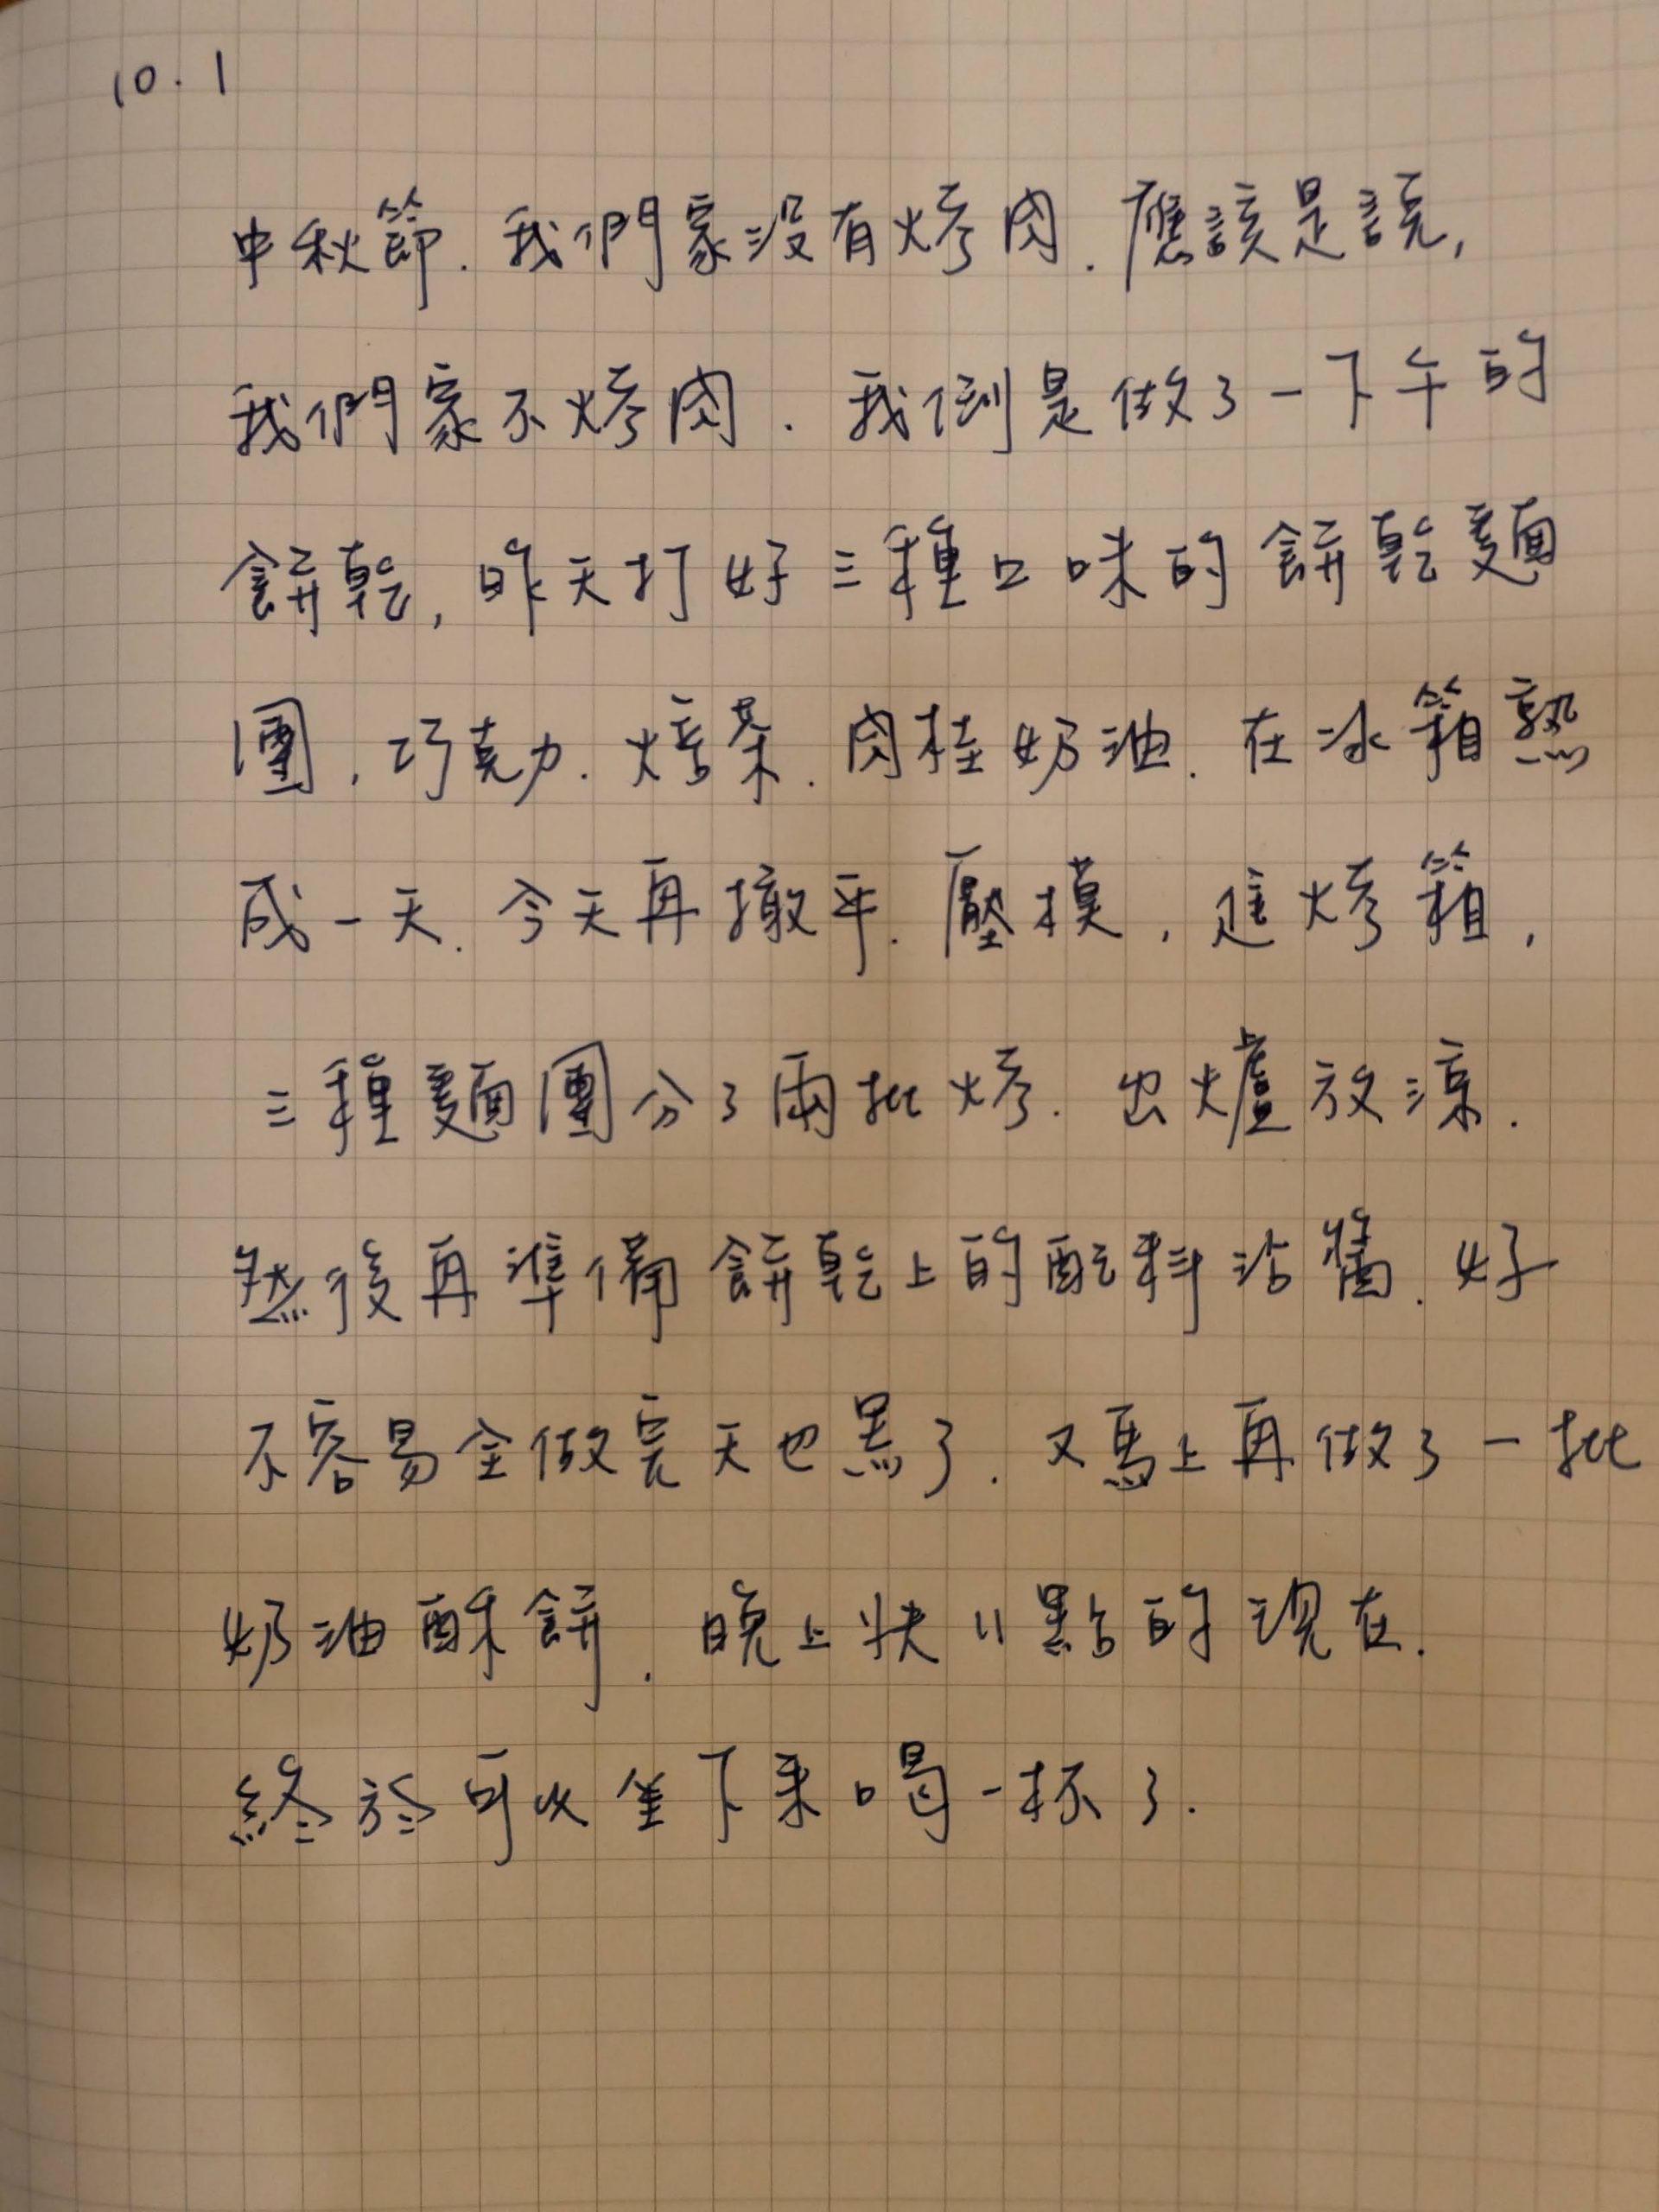 10.1
中秋節.我們家沒有烤肉.應該是說,
我們家不烤肉.我倒是做了一下午的
餅乾,昨天打好三種口味的餅乾麵
團,巧克力.焙茶.肉桂奶油.在冰箱熟
成一天.今天再擀平.壓模,進烤箱,
三種麵團分了兩批烤.出爐放涼.
然後再準備餅乾上的配料沾醬.好
不容易全做完天也黑了.又馬上再做了一批
奶油酥餅.晚上快11點的現在.
終於可以坐下來喝一杯了.